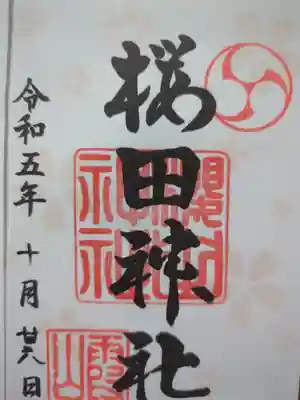 桜田神社
令和五年十月廿八日